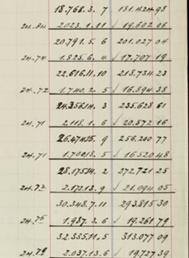 18,768. 3. 7 181,424.98
24.80 2023. 1. 11 19,602 06
20,791. 5. 6 201,027 04
24.74 1,825. 6. 4 17,707 19
22,616.11. 10 218,734 23
24.72 1,740. 2. 5 16,894 38
24,356.14. 3 235,628 61
24.71 2,118. 1. 6 20,572 16
26,474.15. 9 256,200 77
24.71 1,700.13. 5 16,520 48
28,175. 9. 2 272,721 25
24.73 2,172.13. 9 21,094 05
30,348. 2. 11 293,815 30
24.75 1,987. 2. 6 19,261 79
32,335. 5. 5 313,077 09
24.79 2,037.13. 6 19,727 39